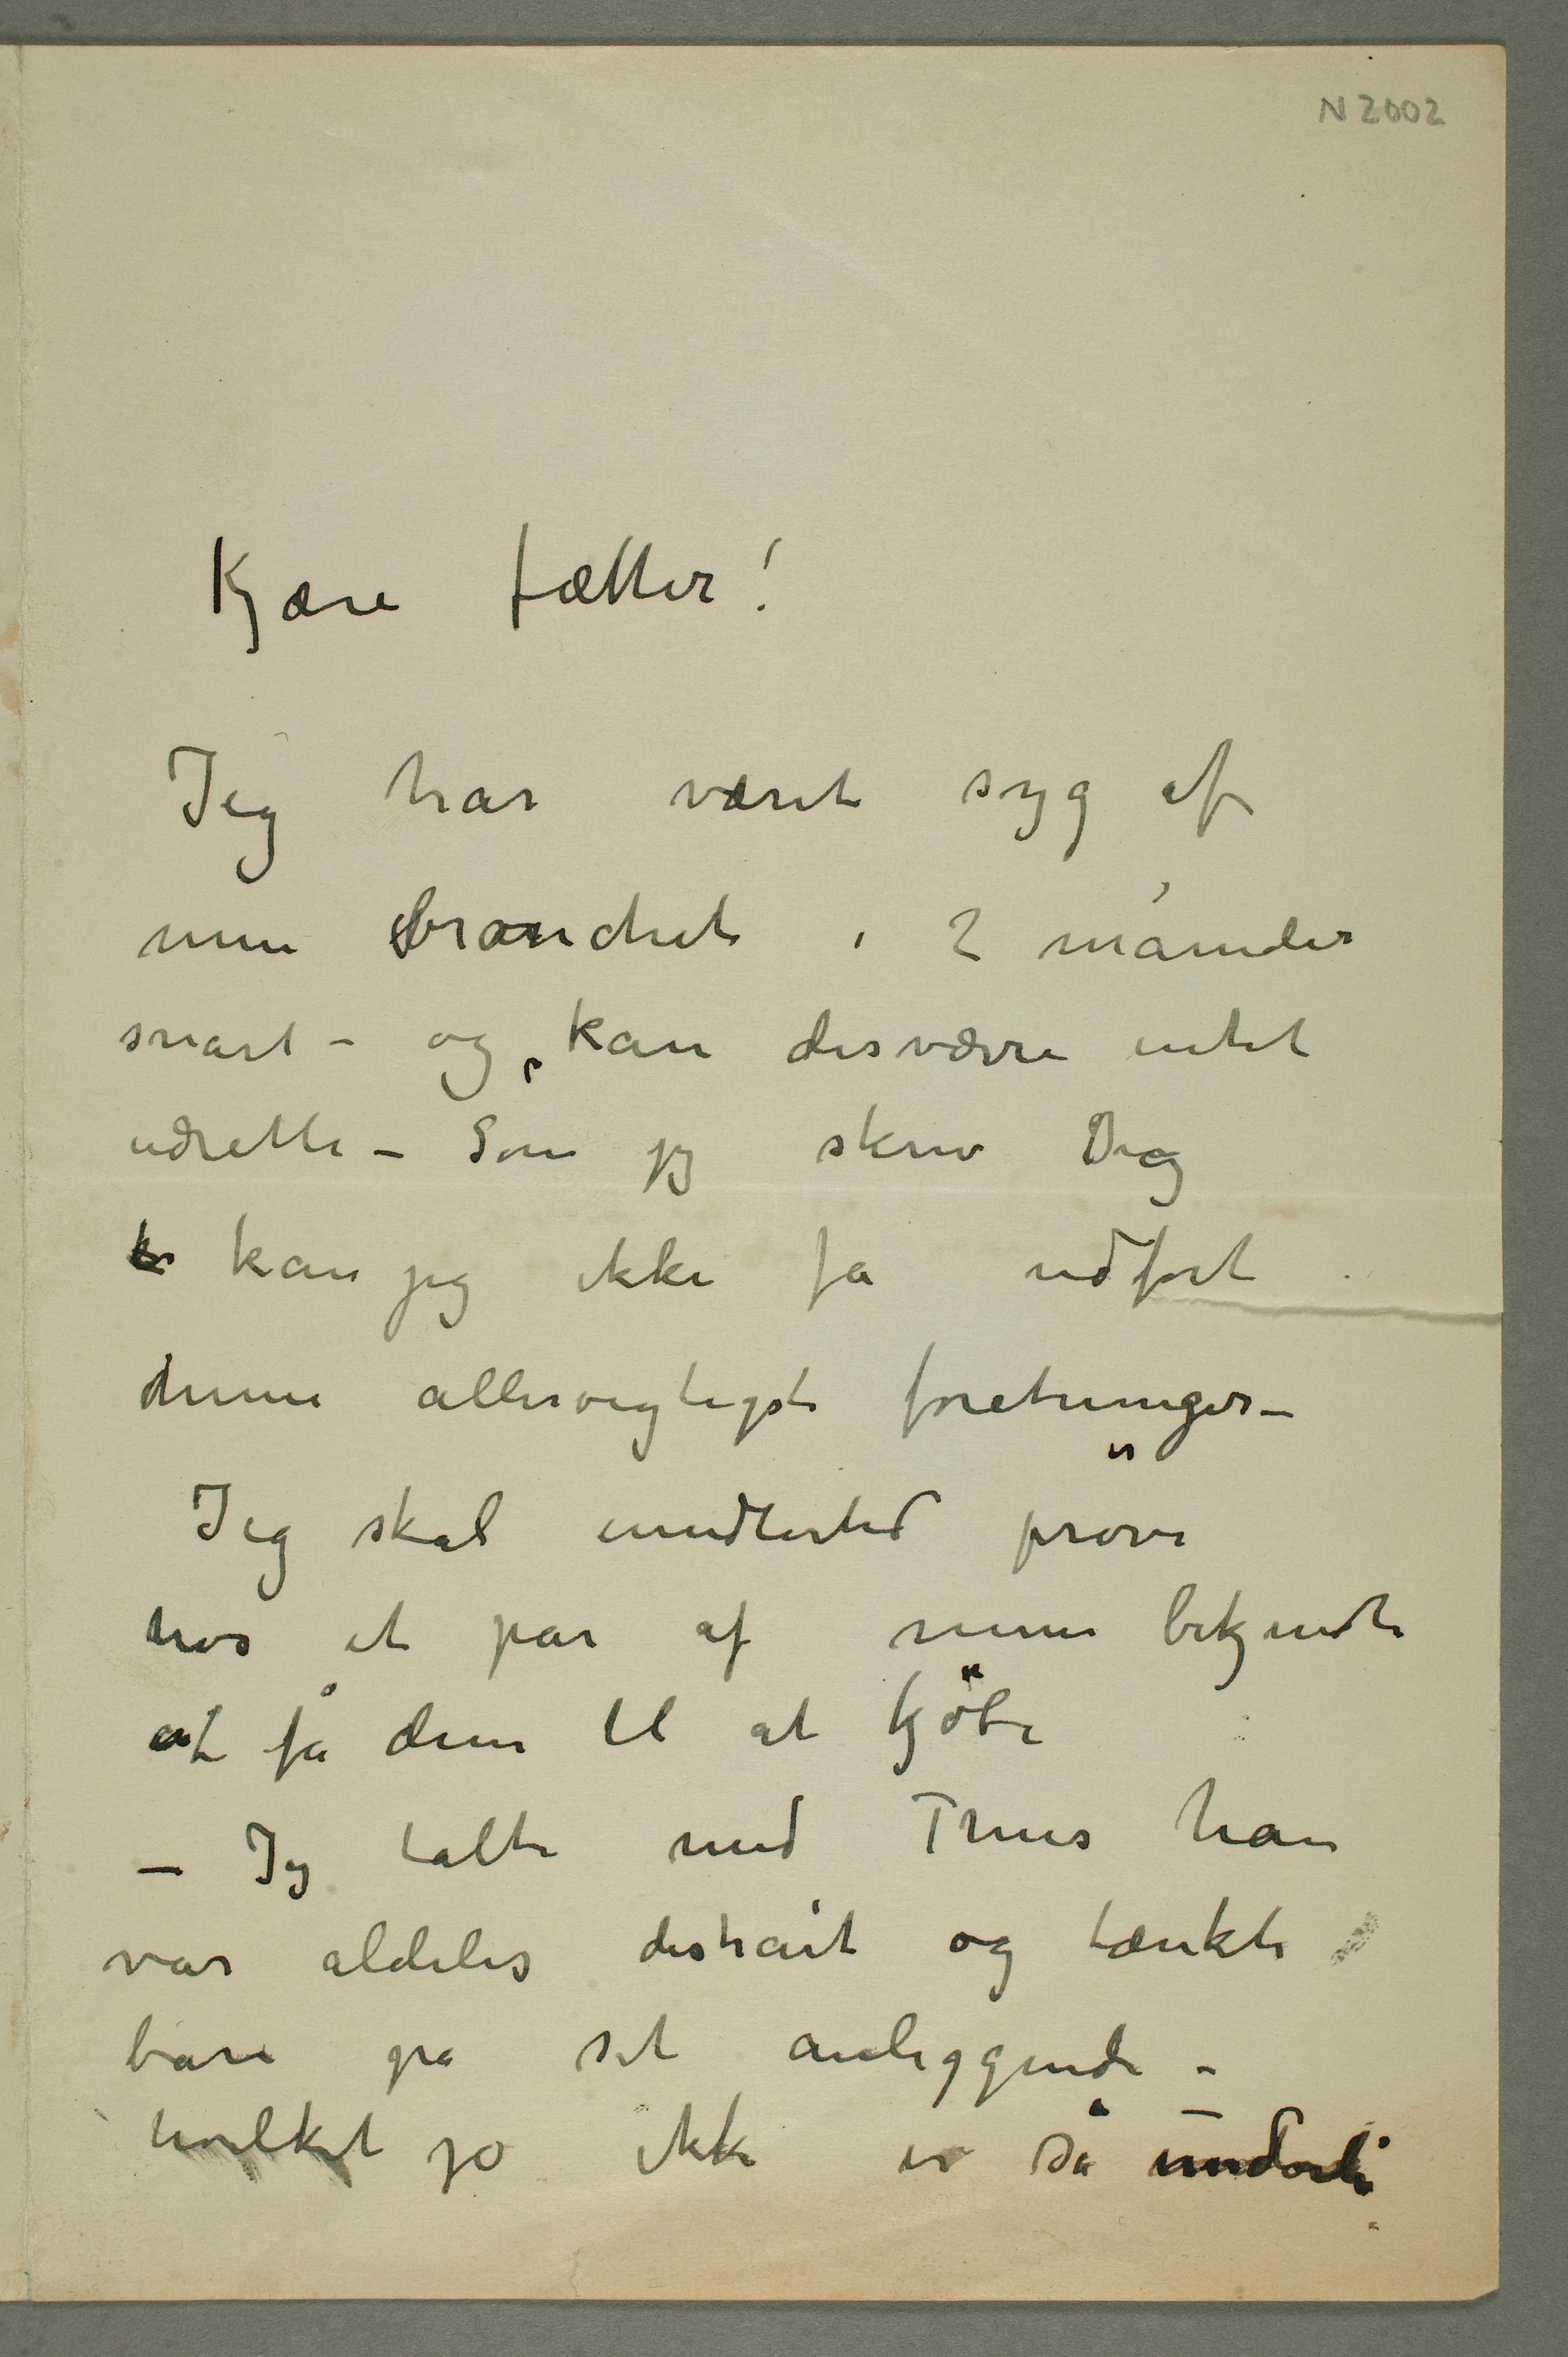 N 2002
Kjære fætter!
Jeg har været syg af
min bronchit i 2 måneder
snart – og kan desværre intet
udrette – Som jeg skrev Dig
kan jeg ikke få udført
mine allervigtigste foretninger –
Jeg skal imidlertid prøve
hos et par af mine bekjendte
at få dem til at kjöbe
– Jeg talte med Thiis han
var aldeles distrait og tænkte
bare på sit anliggende –
hvilket jo ikke er så underli